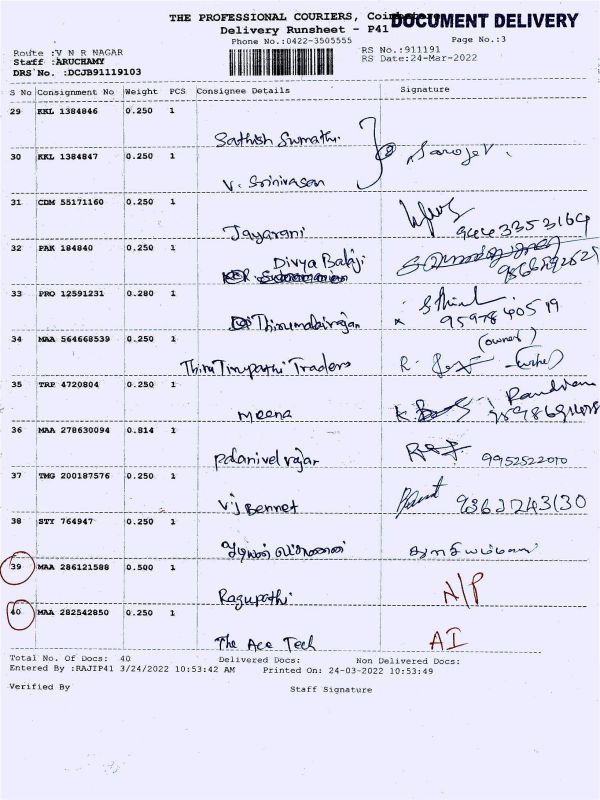 THE PROFESSIONAL COURIERS, Coimbatore
DOCUMENT DELIVERY
Delivery Runsheet - P41
Phone No.:0422-3505555
Page No.:3
Route :V N R NAGAR
Staff :ARUCHAMY
DRS No. :DCJB91119103
RS No.:911191
RS Date:24-Mar-2022
S No Consignment No Weight PCS Consignee Details Signature
29 KKL 1384846 0.250 1
Sathish Sumathi.
30 KKL 1384847 0.250 1
V. Srinivasan
31 CDM 55171160 0.250 1
Jayarani 9443353164
32 PAK 184840 0.250 1
Divya Balaji
33 PRO 12591231 0.280 1
Thirumalairajan 9597840519
34 MAA 564668539 0.250 1
(owner)
Thiru Tirupathi Traders
35 TRP 4720804 0.250 1
Meena
36 MAA 278630094 0.814 1
Palanivel rajar 9952522010
37 TMG 200187576 0.250 1
V.j Bennet 9362743130
38 STY 764947 0.250 1
39 MAA 286121588 0.500 1
Ragupathi N/P
40 MAA 282542850 0.250 1
The Ace Tech AI
Total No. Of Docs: 40 Delivered Docs: Non Delivered Docs:
Entered By :RAJIP41 3/24/2022 10:53:42 AM Printed On: 24-03-2022 10:53:49
Verified By Staff Signature